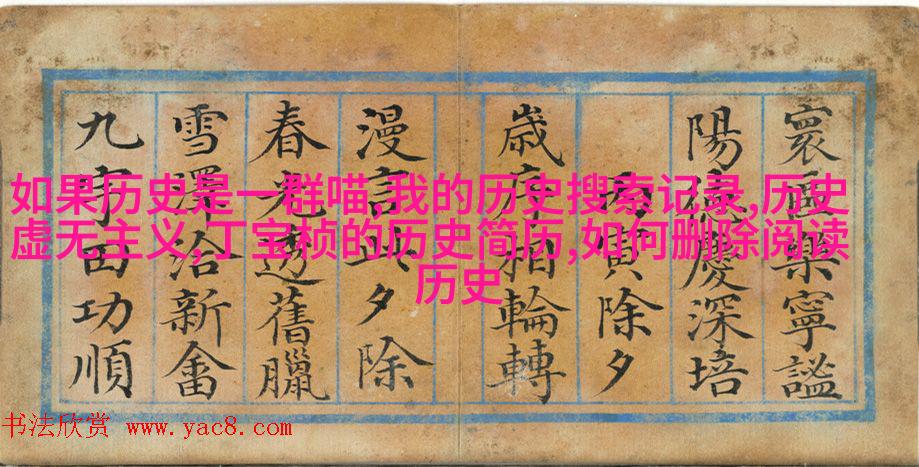 如果历史是一群喵,我的历史搜索记录,历史
虚无主义,丁宝桢的历史简历,如何删除阅读
历史
寰區樂寧謐
陽德慶深培
丙寅除夕
歲序相輪轉
漫言此夕除
春光透舊臘
雪澤洽新畬
九田功順
书法欣赏 www.yac8.com